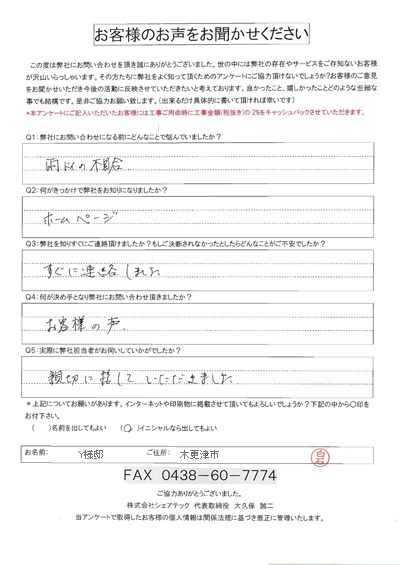 お客様のお声をお聞かせください
この度は弊社にお問い合わせを頂き誠にありがとうございました。世の中には弊社の存在やサービスをご存知ないお客様
が沢山いらっしゃいます。その方たちに弊社をよく知って頂くためのアンケートにご協力頂けないでしょうか?お客様のご意見
をお聞かせいただき今後の活動に反映させていただきたいと考えております。良かったこと、嬉しかったことどのような些細な
事でも結構です。是非ご協力お願い致します。(出来るだけ具体的に書いて頂ければ幸いです)
*本アンケートにご記入いただいたお客様には工事ご用命時に工事金額(税抜き)の2%をキャッシュバックさせていただきます。
Q1:弊社にお問い合わせになる前にどんなことで悩んでいましたか?
雨どいの不具合
Q2:何がきっかけで弊社をお知りになりましたか?
ホームページ
Q3:弊社を知りすぐにご連絡頂けましたか?もしご決断されなかったとしたらどんなことがご不安でしたか?
すぐに連絡しました
Q4:何が決め手となり弊社にお問い合わせ頂きましたか?
お客様の声
Q5:実際に弊社担当者がお伺いしていかがでしたか?
親切に接していただきました
*上記についてお願いがあります。インターネットや印刷物に掲載させて頂いてもよろしいでしょうか?下記の中から〇印を
お付下さい。
( )名前を出してもよい (〇)イニシャルなら出してもよい
お名前: Y様邸 ご住所: 木更津市
FAX 0438-60-7774
ご協力ありがとうございました。
株式会社シェアテック 代表取締役 大久保 誠二
当アンケートで取得したお客様の個人情報は関係法規に基づき厳正に管理いたします。